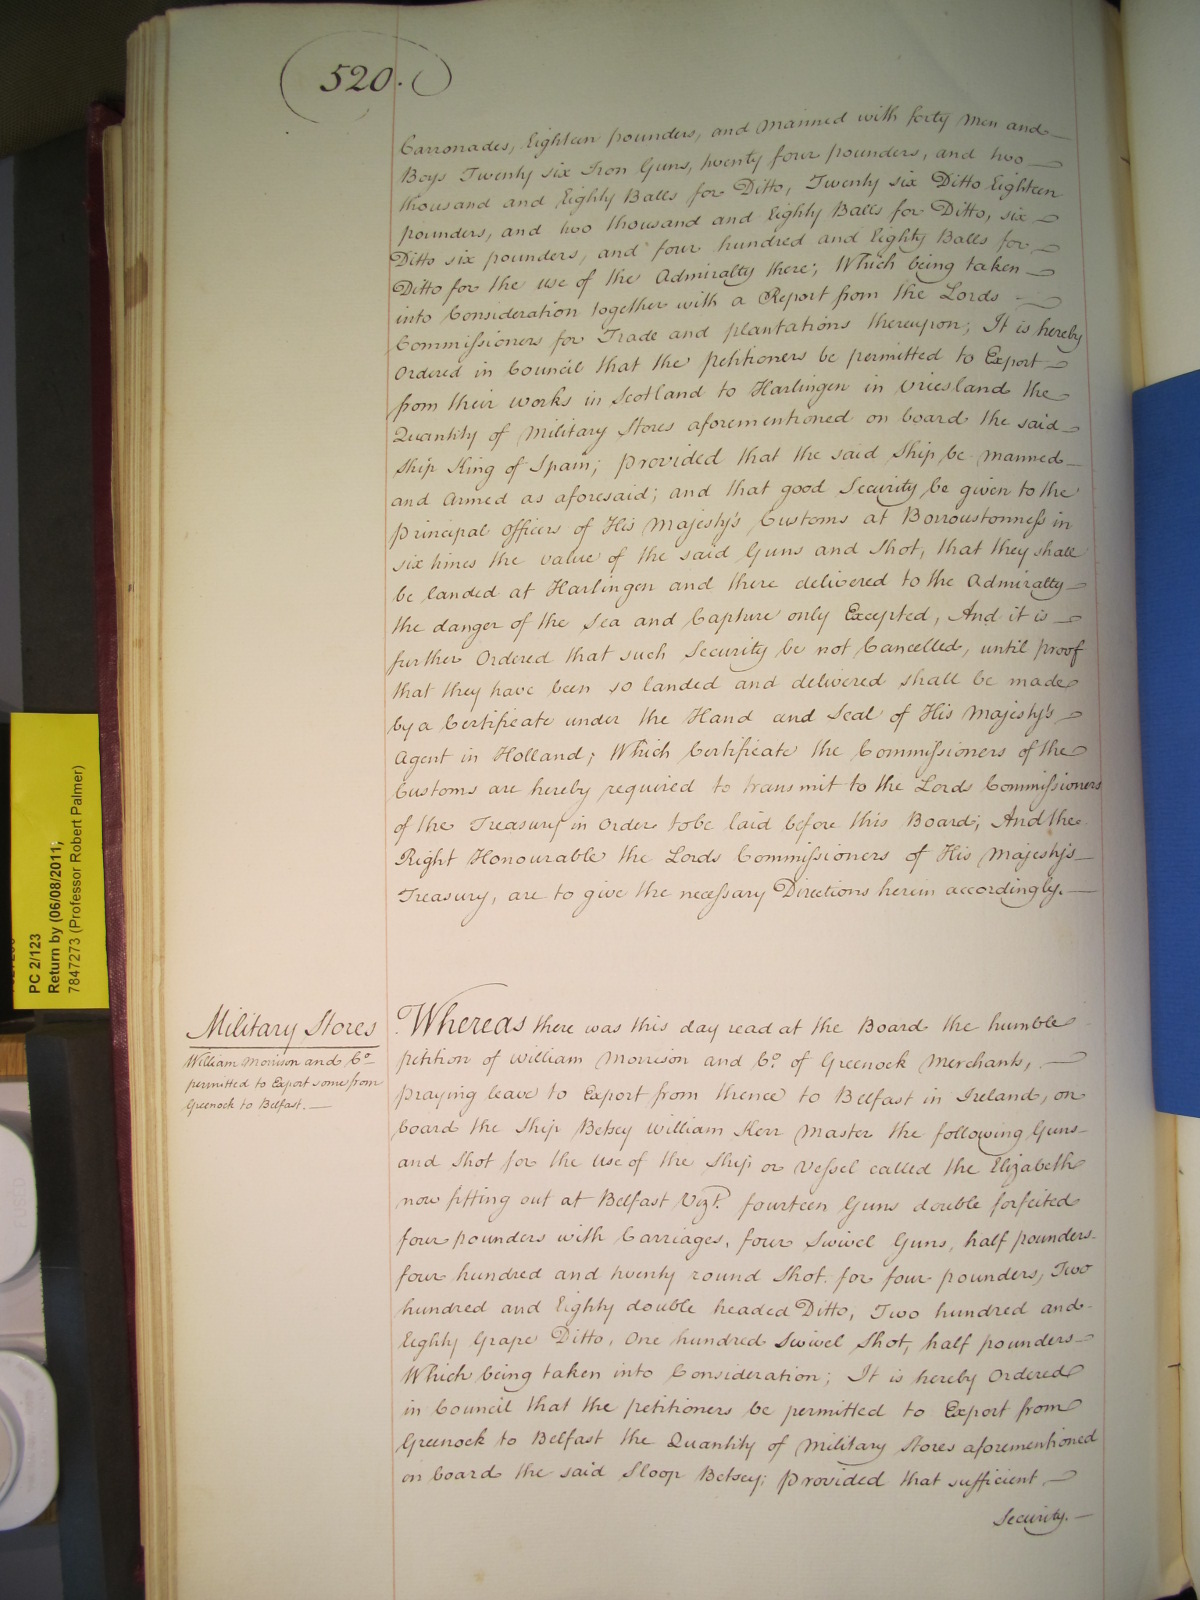 520.
Carronades, Eighteen pounders, and Manned with forty Men and
Boys Twenty six Iron Guns, twenty four pounders, and two
thousand and Eighty Balls for Ditto, Twenty six Ditto Eighteen
pounders, and two thousand and Eighty Balls for Ditto, six
Ditto six pounders, and four hundred and Eighty Balls for
Ditto for the use of the Admiralty there; Which being taken
into Consideration together with a Report from the Lords
Commissioners for Trade and plantations thereupon; It is hereby
Ordered in Council that the petitioners be permitted to Export
from their works in Scotland to Harlingen in Vriesland the
Quantity of Military Stores aforementioned on board the said
Ship King of Spain; provided that the said Ship be manned
and Armed as aforesaid; and that good Security be given to the
Principal Officers of His Majesty's Customs at Borroustonness in
six times the value of the said Guns and Shot, that they shall
be landed at Harlingen and there delivered to the Admiralty
the danger of the Sea and Capture only Excepted, And it is
further Ordered that such Security be not Cancelled, until proof
that they have been so landed and delivered shall be made
by a Certificate under the Hand and Seal of His Majesty's
Agent in Holland; Which Certificate the Commissioners of the
Customs are hereby required to transmit to the Lords Commissioners
of the Treasury in Order to be laid before this Board; And the
Right Honourable the Lords Commissioners of His Majesty's
Treasury, are to give the necessary Directions herein accordingly.
Military Stores
William Morrison and Co.
permitted to Export some from
Greenock to Belfast.
Whereas there was this day read at the Board the humble
petition of William Morrison and Co. of Greenock Merchants,
praying leave to Export from thence to Belfast in Ireland, on
board the Ship Betsey William Kerr Master the following Guns
and Shot for the use of the Ship or Vessel called the Elizabeth
now fitting out at Belfast Vizt. fourteen Guns double forfeited
four pounders with Carriages, four Swivel Guns, half pounders
four hundred and twenty round Shot for four pounders, Two
hundred and Eighty double headed Ditto, Two hundred and
Eighty Grape Ditto, One hundred Swivel Shot, half pounders
Which being taken into Consideration; It is hereby Ordered
in Council that the petitioners be permitted to Export from
Greenock to Belfast the Quantity of Military Stores aforementioned
on board the said Sloop Betsey; provided that sufficient
Security.
PC 2/123
Return by (06/08/2011;
7847273 (Professor Robert Palmer)